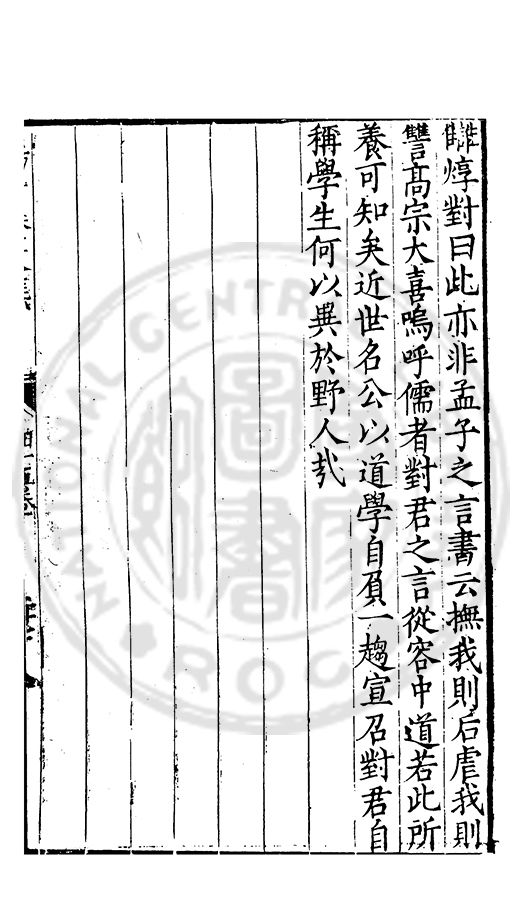 讎焞對曰此亦非孟子之言書云撫我則后虐我則
讐高宗大喜嗚呼儒者對君之言從容中道若此所
養可知矣近世名公以道學自負一趨宣召對君自
稱學生何以異於野人哉
NATIONAL CENTRAL
圖書
ROC